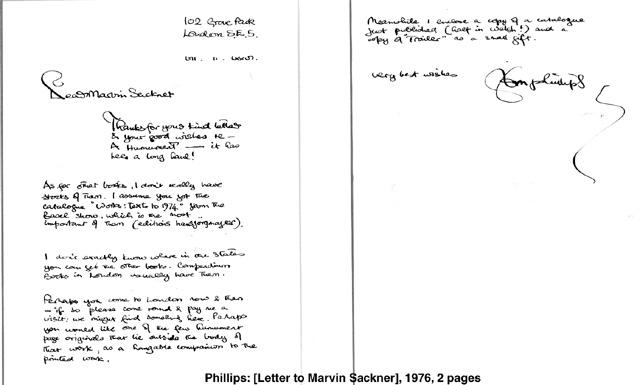 102 Grove Park
London S.E.5.
Dear Marvin Sackner
Thanks for your kind letter
& your good wishes re —
A Humument — it has
been a long haul!
As for other books, I don't really have
stocks of them. I assume you got the
catalogue "Works: Texts to 1974" from the
Basel show, which is the most
important of them (edition hansjorg mayer).
I don't exactly know where in the States
you can get the other books. Compendium
Books in London usually have them.
Perhaps you come to London now & then
— if so please come round & pay me a
visit; we might find something here. Perhaps
you would like one of the few humument
page originals that lie outside the body of
that work, as a hangable companion to the
printed work.
Meanwhile I enclose a copy of a catalogue
just published (half in Welsh!) and a
copy of "Trailer" as a small gift.
very best wishes
Tom Phillips
Phillips: [Letter to Marvin Sackner], 1976, 2 pages